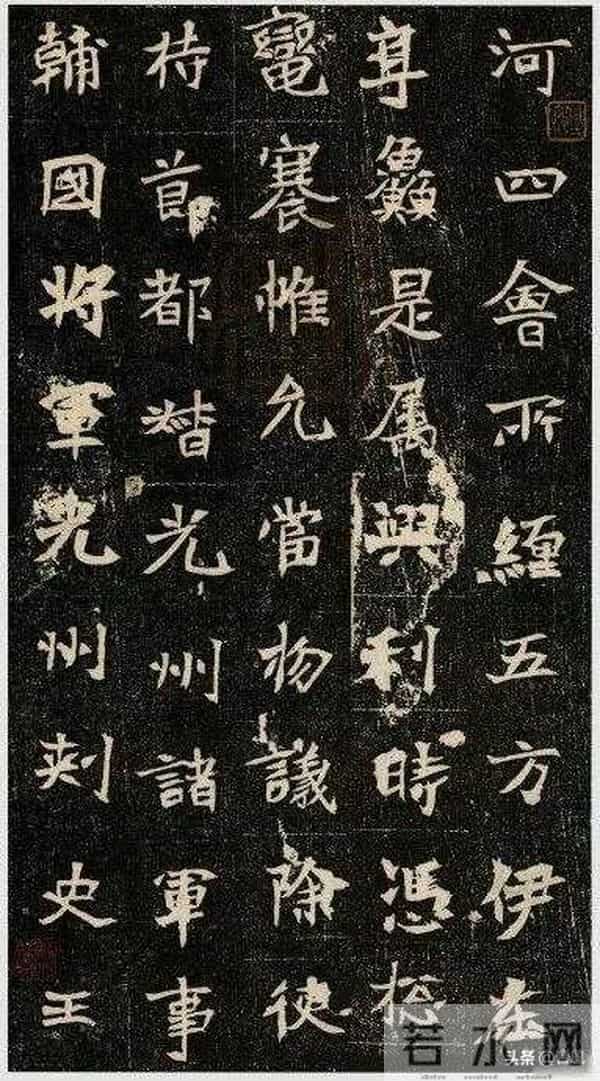 河四會所經五方伊在
是属興利時憑
褰惟允當物議除使
持節都督光州諸軍事
輔國將軍光州刾史王
若水网
头条